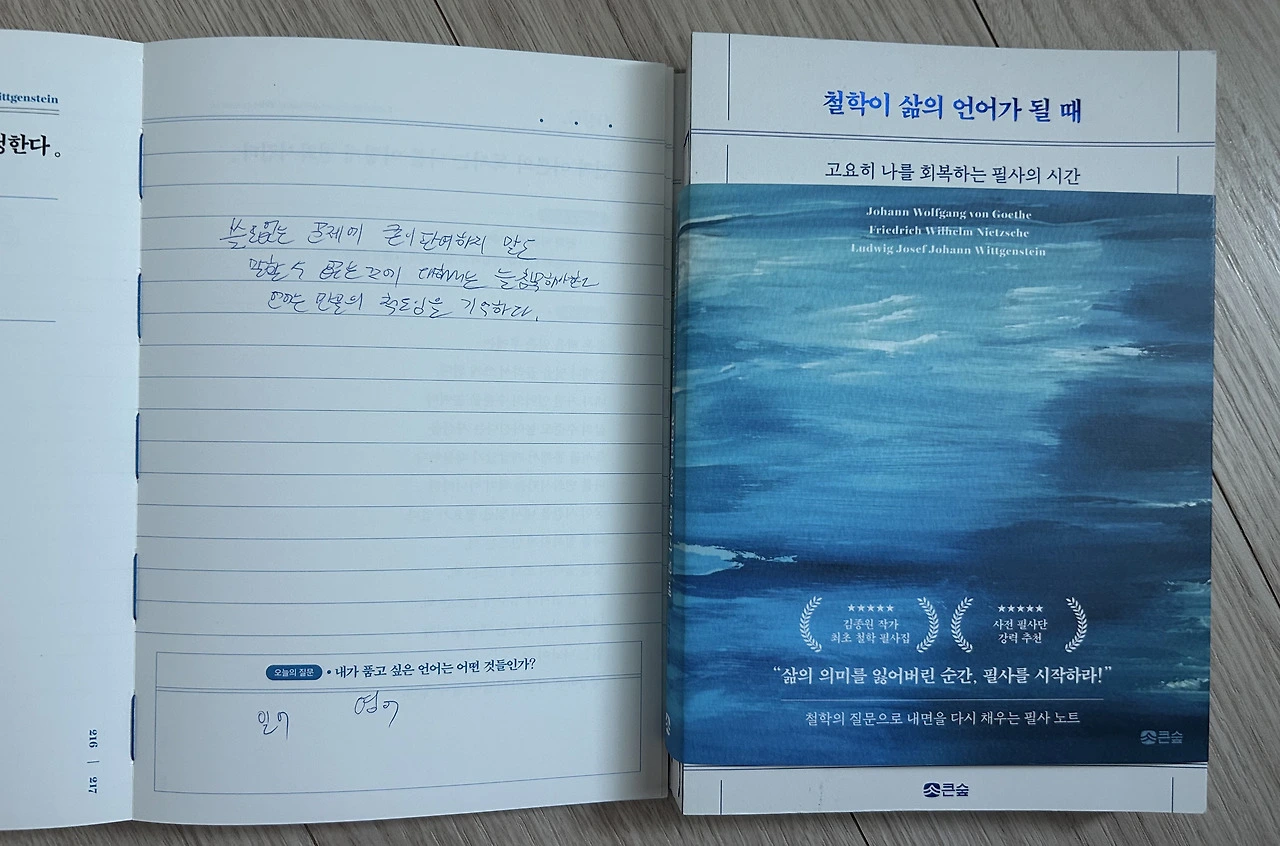 ittgenstein
한다。
쓸모없는 문제에 관여하지 말고
말할 수 없는 것에 대해서는 늘 침묵해야 하고
언어는 만물의 척도임을 기억하다.
오늘의 질문 • 내가 품고 싶은 언어는 어떤 것들인가?
일어 영어
216 | 217
철학이 삶의 언어가 될 때
고요히 나를 회복하는 필사의 시간
Johann Wolfgang von Goethe
Friedrich Wilhelm Nietzsche
Ludwig Josef Johann Wittgenstein
★★★★★ ★★★★★
김종원 작가 사전 필사단
최초 철학 필사집 강력 추천
“삶의 의미를 잃어버린 순간, 필사를 시작하라!”
철학의 질문으로 내면을 다시 채우는 필사 노트
큰숲
큰숲